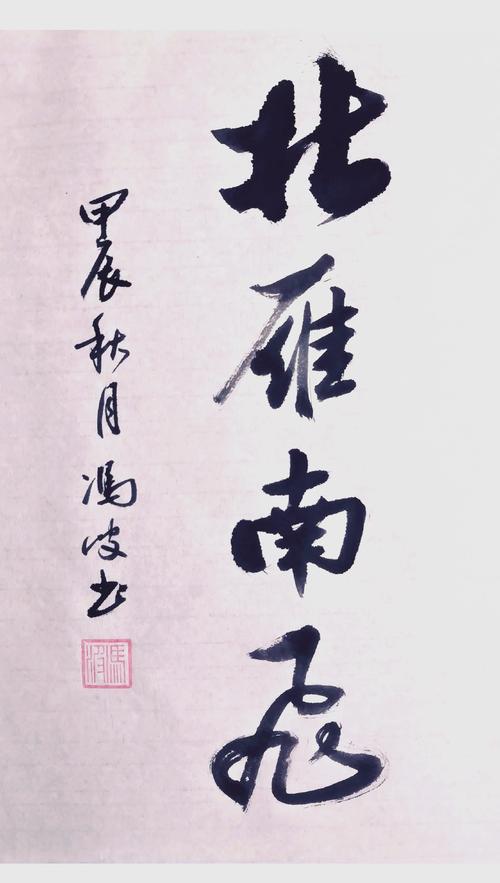 北雁南飛
甲辰秋月馮波书